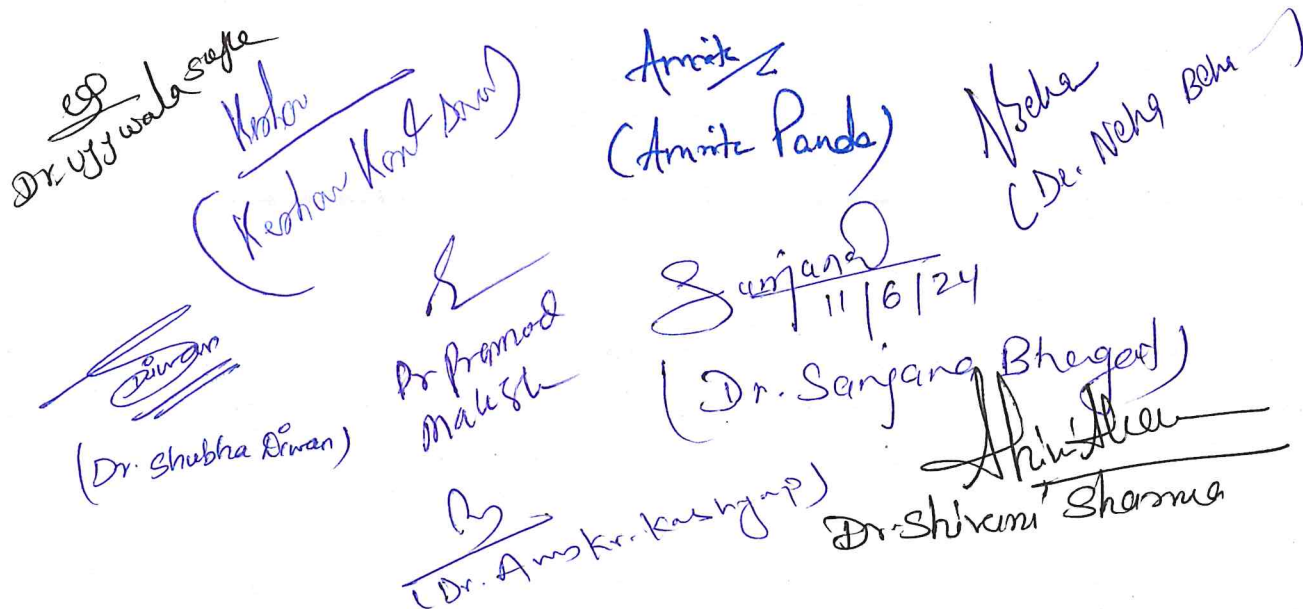 Dr. Ujjwala Supe
Keshav
(Keshav Kant
Amrita
(Amrita Panda)
NBeha
(Dr. Neha Beha
Diwan
(Dr. Shubha Diwan)
Dr Pramod
Sanjana
11/6/24
(Dr. Sanjana Bhagat)
(Dr. Kr. Kashyap)
Dr. Shivani Sharma